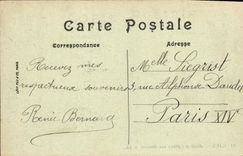 Carte Postale
Correspondance
Adresse
Melle Siegrist
Recevez mes
respectueux souvenirs
3, rue Alphonse Daudet
Renée Bernard
Paris XIVe